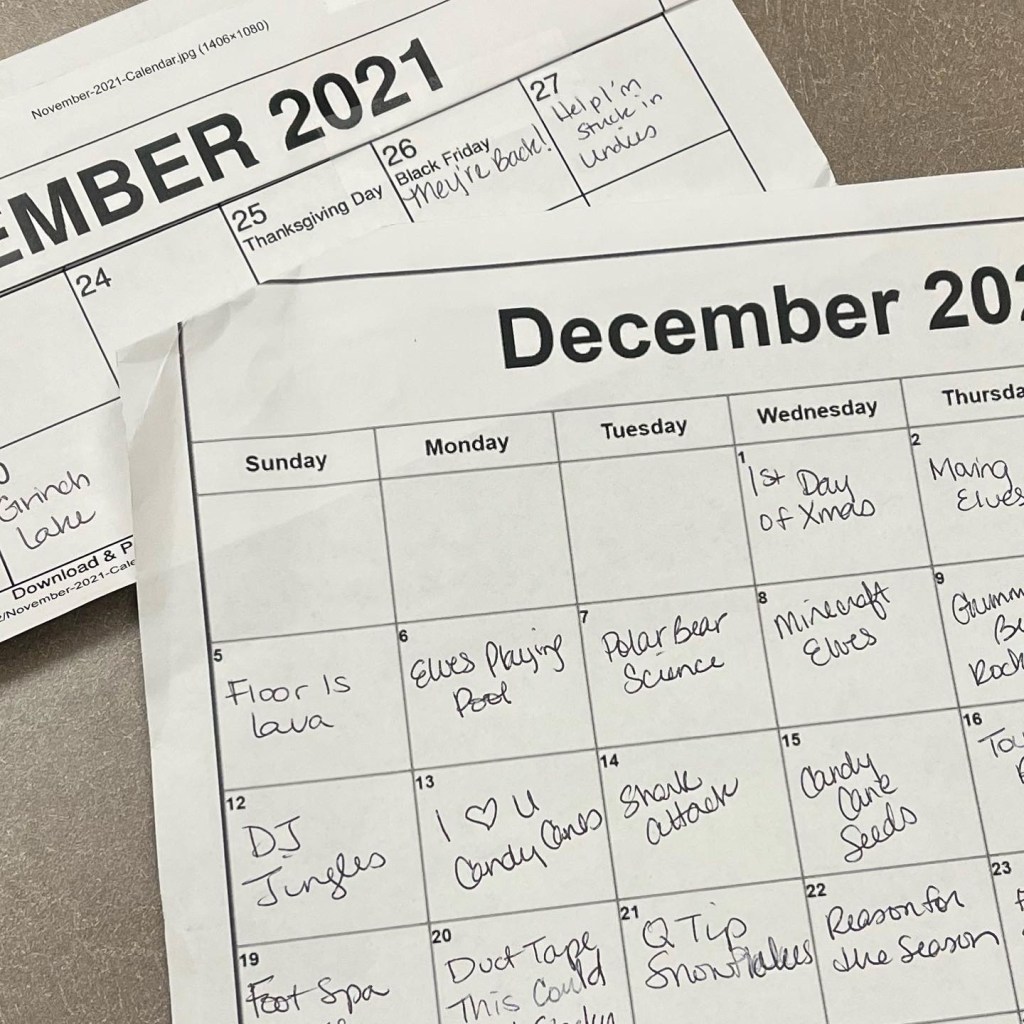 November-2021-Calendar.jpg (1406×1080)
EMBER 2021
24
25
Thanksgiving Day
26
Black Friday
They're Back!
27
Help I'm
Stuck in
Undies
Grinch
Lake
Download & P
/November-2021-Cale
December 202
Sunday
Monday
Tuesday
Wednesday
Thursda
1
1st Day
of Xmas
2
Moving
Elves
5
Floor Is
Lava
6
Elves Playing
Pool
7
Polar Bear
Science
8
Minecraft
Elves
9
Gumm
Be
Rock
12
DJ
Jingles
13
I ♡ U
Candy Canes
14
Shark
attack
15
Candy
Cane
Seeds
16
To
19
Foot Spa
20
Duct Tape
This Could
21
Q Tip
Snowflakes
22
Reason for
the Season
23